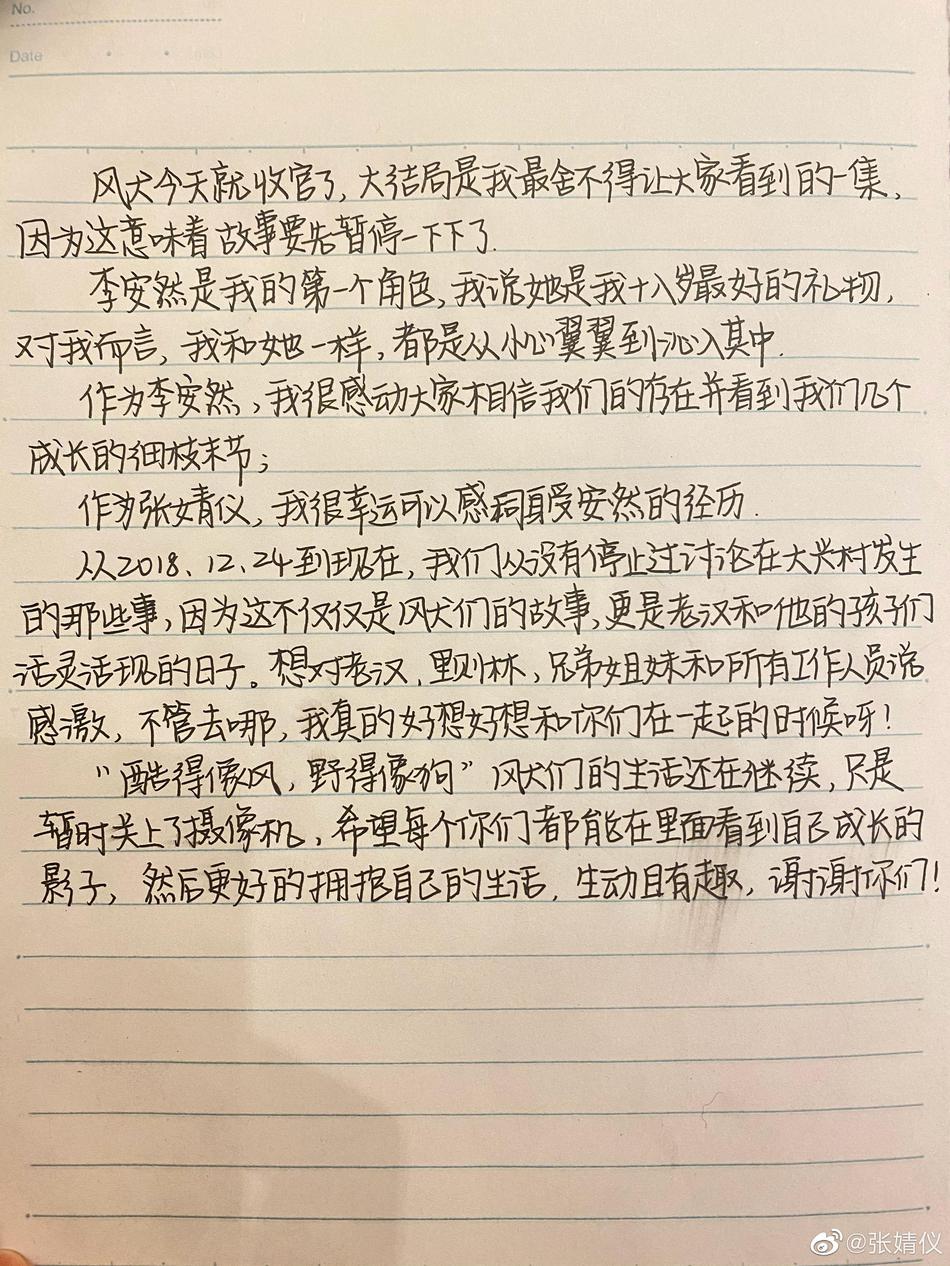 No.
Date
风犬今天就收官了，大结局是我最舍不得让大家看到的一集，
因为这意味着故事要先暂停一下下了.
李安然是我的第一个角色，我说她是我十八岁最好的礼物，
对我而言，我和她一样，都是从小心翼翼到沁入其中.
作为李安然，我很感动大家相信我们的存在并看到我们几个
成长的细枝末节；
作为张婧仪，我很幸运可以感同身受安然的经历.
从2018.12.24到现在，我们从没有停止过讨论在大兴村发生
的那些事，因为这不仅仅是风犬们的故事，更是老汉和他的孩子们
活灵活现的日子。想对老汉，里则林，兄弟姐妹和所有工作人员说
感激，不管去哪，我真的好想好想和你们在一起的时候呀！
“酷得像风，野得像狗”风犬们的生活还在继续，只是
暂时关上了摄像机，希望每个你们都能在里面看到自己成长的
影子，然后更好的拥抱自己的生活，生动且有趣，谢谢你们！
@张婧仪